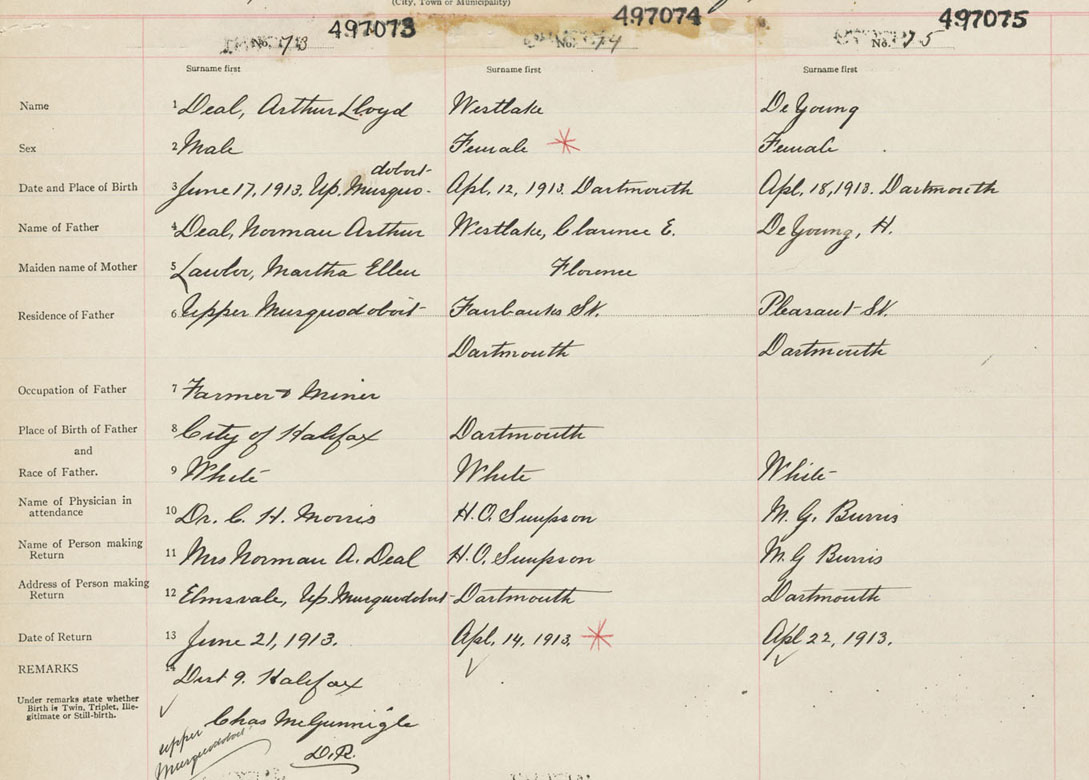 (City, Town or Municipality)
497073 497074 497075
No. 73 No. 74 No. 75
Surname first Surname first Surname first
Name 1 Deal, Arthur Lloyd Westlake De Young
Sex 2 Male Female Female
doboit
Date and Place of Birth 3 June 17, 1913. Up. Musquo- Apl. 12, 1913. Dartmouth Apl. 18, 1913. Dartmouth
Name of Father 4 Deal, Norman Arthur Westlake, Clarence E. De Young, H.
Maiden name of Mother 5 Lawlor, Martha Ellen Florence
Residence of Father 6 Upper Musquodoboit Fairbanks St. Pleasant St.
Dartmouth Dartmouth
Occupation of Father 7 Farmer & Miner
Place of Birth of Father 8 City of Halifax Dartmouth
and
Race of Father. 9 White White White
Name of Physician in
attendance 10 Dr. C. H. Morris H.O. Simpson M. G. Burris
Name of Person making
Return 11 Mrs Norman A. Deal H.O. Simpson M.G Burris
Address of Person making
Return 12 Elmsvale, Up. Musquodoboit Dartmouth Dartmouth
Date of Return 13 June 21, 1913. Apl. 14, 1913. Apl 22, 1913.
REMARKS 14 Dist 9. Halifax
Under remarks state whether
Birth is Twin, Triplet, Ille-
gitimate or Still-birth.
Chas McGunnigle
D.R.
upper
Musquodoboit